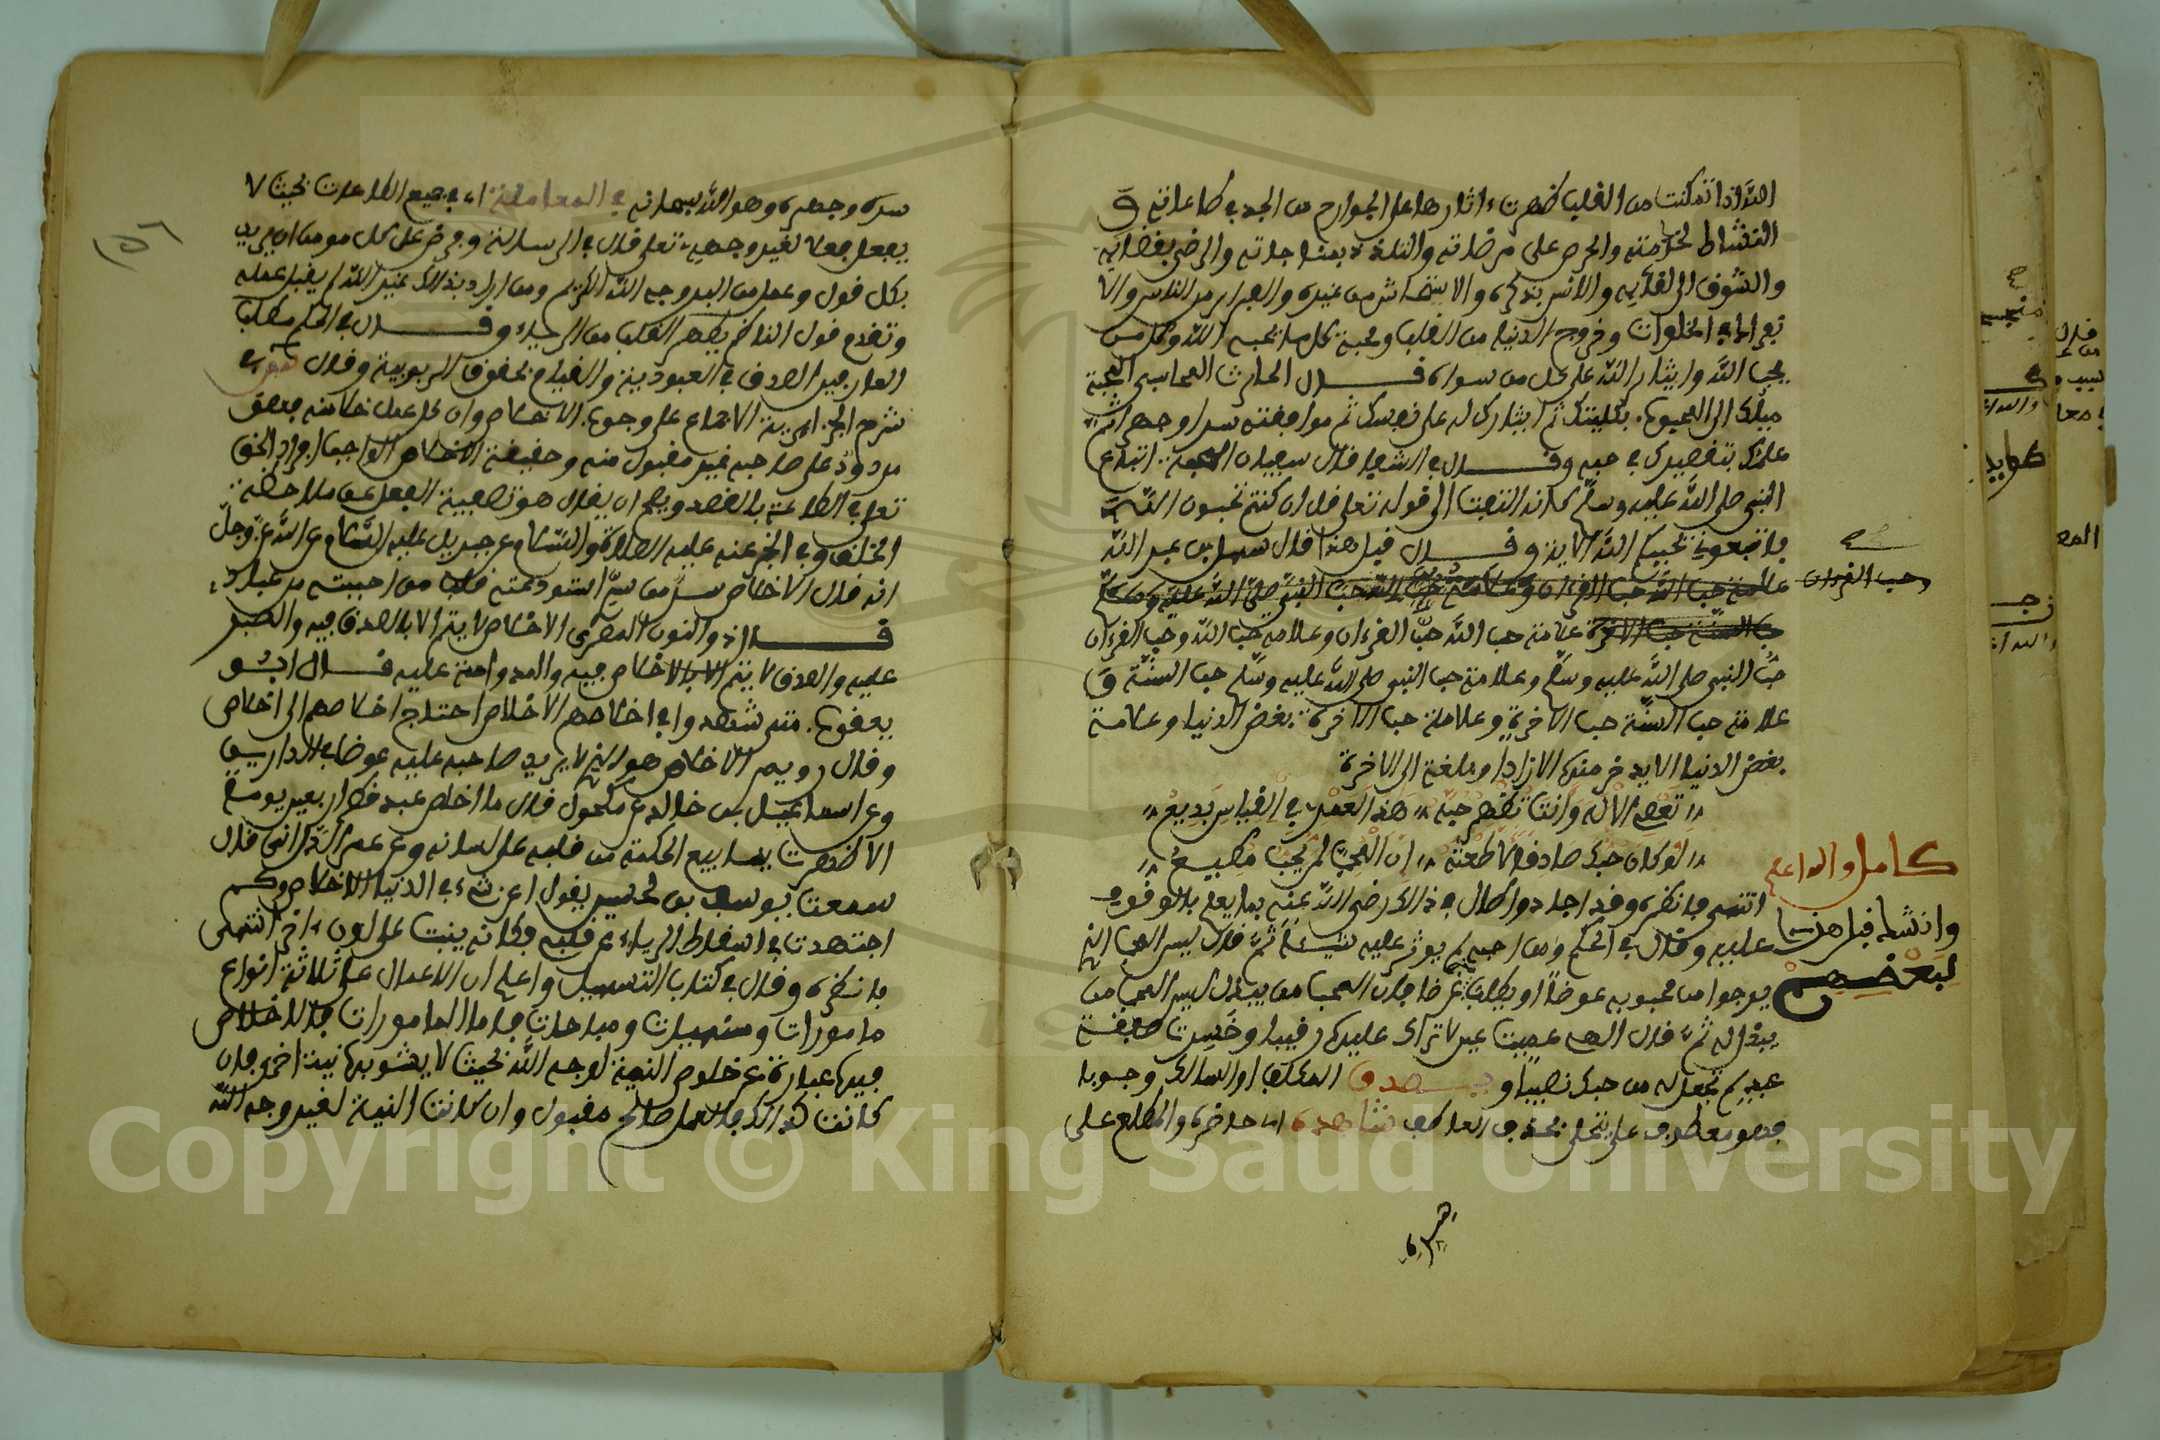 الله اذا تمكنت من القلب ظهرت ءاثارها على الجوارح من الجد في طاعاته و
النشاط لخدمته والحرص على مرضاته والتلذذ بمناجاته والرضى بقضايه
والشوق الى لقايه والانس بذكره والاستيحاش من غيره والفرار من الناس والا
نفراد في الخلوات وخروج الدنيا من القلب ومحبة كل ما يحبه الله وكل من
يحب الله وايثار الله على كل من سواه قال الحارث المحاسبي المحبة
ميلك الى المحبوب بكليتك ثم ايثارك له على نفسك ثم موافقته سرا وجهرا ثم
علمك بتقصيرك في حبه وقال في الشفا قال سفيان المحبة اتباع
النبي صلى الله عليه وسلم كانه التفت الى قوله تعلى قل ان كنتم تحبون الله
فاتبعوني يحببكم الله الاية وقال قبل هذا قال سهل بن عبد الله
علامة حب الله حب القرءان وعلامة حب الله حب النبي صلى الله عليه وسلم
وحب القرءان
حب السنة حب الاخرة علامة حب الله حب القرءان وعلامة حب الله وحب القرءان
حب النبي صلى الله عليه وسلم وعلامة حب النبي صلى الله عليه وسلم حب السنة و
علامة حب السنة حب الاخرة وعلامة حب الاخرة بغض الدنيا وعلامة
بغض الدنيا الا يدخر منها الا زادا وبلغة الى الاخرة
تعصي الاله وانت تظهر حبه هذا لعمري في القياس بديع
لو كان حبك صادقا لاطعته ان المحب لمن يحب مطيع
كامل والله اعلم
وانشد قبل هذا
لبعضهم
انتهى فانظره وقد اجاد واطال في ذالك رضي الله عنه بما يعلم بالوقوف
عليه وقال في الحكم ومن احبه لم يوثر عليه شيئا ثم قال ليس المحب الذي
يرجوا من محبوبه عوضا او يطلب غرضا فان المحب من يبذل ليس المحب من
يبذل له ثم قال الهي عميت عين لا تراك عليها رقيبا وخسرت صفقة
عبد لم تجعل له من حبك نصيبا ويصدق المكلف او السالك وجوبا
فهو معطوف على يتحلى بحذف العاطف شاهده اي حاضره والمطلع على
سره وجهره وهو الله سبحانه في المعاملة اي في جميع الطاعات بحيث لا
يفعل فعلا لغير وجهه تعلى قال في الرسالة وفرض على كل مومن ان يريد
بكل قول وعمل من البر وجه الله الكريم ومن اراد بذالك غير الله لم يقبل عمله
وتقدم قول الناظم يطهر القلب من الرياء وقال في الحكم مطلب
العارفين الصدق في العبودية والقيام بحقوق الربوبية وقال في
شرح الجزايرية الاجماع على وجوب الاخلاص وان كل عمل خلا منه فهو
مردود على صاحبه غير مقبول منه وحقيقة الاخلاص الواجب افراد الحق
تعلى في الطاعة بالقصد ويصح ان يقال هو تصفية الفعل عن ملاحظة
الخلق وفي الخبر عنه عليه الصلاة والسلام عن جبريل عليه السلام عن الله عز وجل
انه قال الاخلاص سر من سري استودعته قلب من احببته من عبادي
قال ذو النون المصري الاخلاص لا يتم الا بالصدق فيه والصبر
عليه والصدق لا يتم الا بالاخلاص فيه والمداومة عليه قال ابو
يعقوب متى شهدوا في اخلاصهم الاخلاص احتاج اخلاصهم الى اخلاص
وقال رويم الاخلاص هو الذي لا يريد صاحبه عليه عوضا في الدارين
وعن اسماعيل بن خالد عن مكحول قال ما اخلص عبد قط اربعين يوما
الا ظهرت ينابيع الحكمة من قلبه على لسانه وعن عمر الداراني قال
سمعت يوسف بن الحسين يقول اعز شيء في الدنيا الاخلاص وكم
اجتهدت في اسقاط الرياء عن قلبي فكانه ينبت على لون ءاخر انتهى
فانظره وقال في كتاب التسهيل واعلم ان الاعمال على ثلاثة انواع
مامورات ومنهيات ومباحات فاما المامورات فالاخلاص
فيها عبارة عن خلوص النية لوجه الله بحيث لا يشوبها نية اخرى فان
كانت كذالك فالعمل صالح مقبول وان كانت النية لغير وجه الله